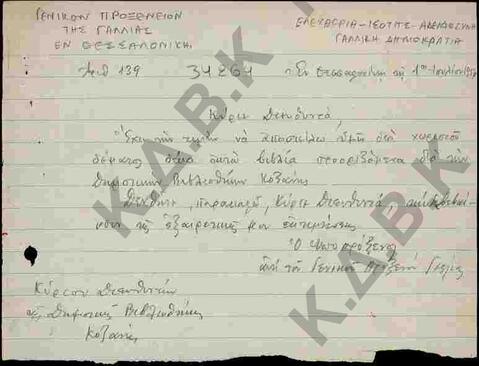 ΓΕΝΙΚΟΝ ΠΡΟΞΕΝΕΙΟΝ
ΤΗΣ ΓΑΛΛΙΑΣ
ΕΝ ΘΕΣΣΑΛΟΝΙΚΗ
ΕΛΕΥΘΕΡΙΑ-ΙΣΟΤΗΣ-ΑΔΕΛΦΟΣΥΝΗ
ΓΑΛΛΙΚΗ ΔΗΜΟΚΡΑΤΙΑ
Αριθ 139 34261 Εν Θεσσαρονίκη τη 1η Ιουλίου
Κύριε Διευθυντά,
Έχω την τιμήν να αποστείλω υμίν διά χωριστού
δέματος δέκα οκτώ βιβλία προοριζόμενα διά την
Δημοτικήν Βιβλιοθήκην Κοζάνης
Δεχθήτε, παρακαλώ, Κύριε Διευθυντά, την
της εξαιρετικής μου εκτιμήσεως
Ο Υποπρόξενος
αντί του Γενικού Προξένου Γαλλίας
Κύριον Διευθυντήν
της Δημοτικής Βιβλιοθήκης
Κοζάνης
Κ.Δ.Β.Κ
Κ.Δ.Β.Κ